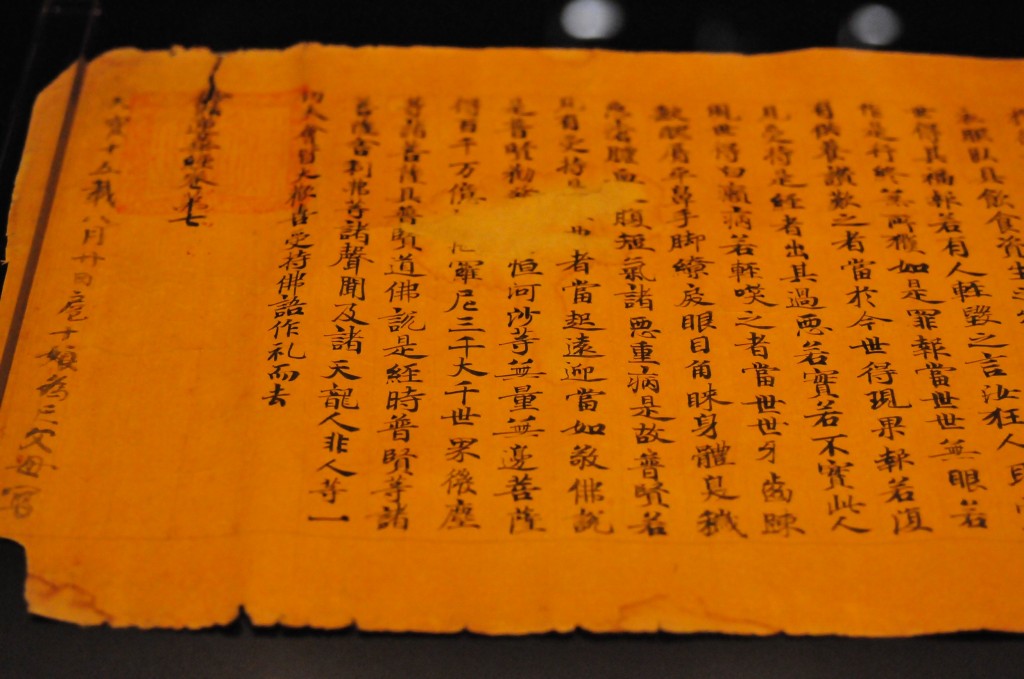 衣服臥具飲食資生之
世得其福報若有人輕毀之言汝狂人耳
作是行終無所獲如是罪報當世世無眼若
有供養讚歎之者當於今世得現果報若復
見受持是經者出其過惡若實若不實此人
現世得白癩病若輕咲之者當世世牙齒踈
缺脣鼻手脚繚戾眼目角睞身體臭穢
惡瘡膿血腹短氣諸惡重病是故普賢若
見有受持是者當起遠迎當如敬佛說
是普賢勸恒河沙等無量無邊菩薩
得百千万億羅尼三千大千世界微塵
等諸菩薩具普賢道佛說是經時普賢等諸
菩薩舍利弗等諸聲聞及諸天龍人非人等一
切大會皆大歡喜受持佛語作礼而去
蓮華經卷第七
天寶十五載八月廿日為亡父母寫